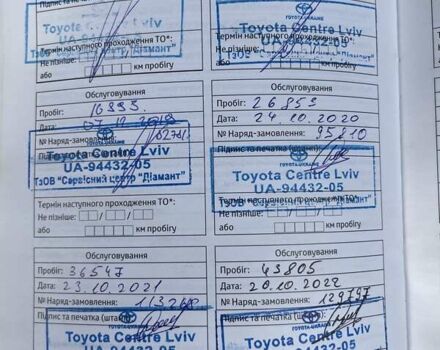 Toyota Centre Lviv
TOYOTA-UKRAINE
Toyota Centre Lviv
UA-94432-05
ТзОВ "Сервісний центр "Діамант"
Термін наступного проходження ТО*:
Не пізніше:
або км пробігу
Термін наступного проходження ТО*:
Не пізніше:
або км пробігу
Обслуговування
Пробіг:
Дата: 12 2019
№ Наряд-замовлення:
Toyota Centre Lviv
UA-94432-05
ТзОВ "Сервісний центр "Діамант"
Термін наступного проходження ТО*:
Не пізніше:
або км пробігу
Обслуговування
Пробіг: 26853
Дата: 24.10.2020
№ Наряд-замовлення: 95810
Підпис та печатка
TOYOTA-UKRAINE
Toyota Centre Lviv
UA-94432-05
Не пізніше:
або км пробігу
Обслуговування
Пробіг: 36547
Дата: 23.10.2021
№ Наряд-замовлення: 113268
Підпис та печатка (штамп)
TOYOTA-UKRAINE
Toyota Centre Lviv
UA-94432-05
Обслуговування
Пробіг: 43805
Дата: 20.10.2022
№ Наряд-замовлення: 129797
Підпис та печатка
Toyota Centre Lviv
UA-94432-05